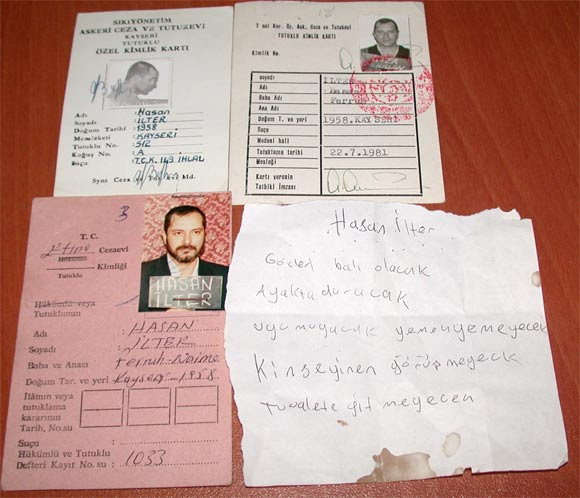 SIKIYÖNETİM
ASKERİ CEZA VE TUTUKEVİ
KAYSERİ
TUTUKLU
ÖZEL KİMLİK KARTI
Adı : Hasan
Soyadı : İLTER
Doğum Tarihi : 1958
Memleketi : KAYSERİ
Tutuklu No. : 512
Koğuş No. : A
Suçu : T.C.K. 163 İHLAL
Synt Ceza Tut. Evi Md.
7 nci Kor. Öz. Ask. Ceza ve Tutukevi
TUTUKLU KİMLİK KARTI
Kimlik No.
soyadı İLTER
Adı
Baba Adı Ferruh
Ana Adı
Doğum T. ve yeri 1958.KAYSERİ
Suçu
Medeni hali
Tutuklama tarihi 22.7.1981
Mesleği
Kartı verenin
Tatbiki İmzası
3
T. C.
Cezaevi
Hükümlü
Kimliği
Tutuklu
HASAN
İLTER
Hükümlü veya
Tutuklunun
Adı : HASAN
Soyadı : İLTER
Baba ve Anası : Ferruh-Naime
Doğum Tar. ve yeri : Kayseri-1958
İlâmın veya
tutuklama
kararının
Tarih, No.su
Suçu :
Hükümlü ve Tutuklu
Defteri Kayıt No. su : 1033
Hasan ilter
Gözleri bali olacak
Ayakta duracak
uyumuyacak yemenyemeyecek
Kimseyinen görüşmeyecek
tuvalete gitmeyecen